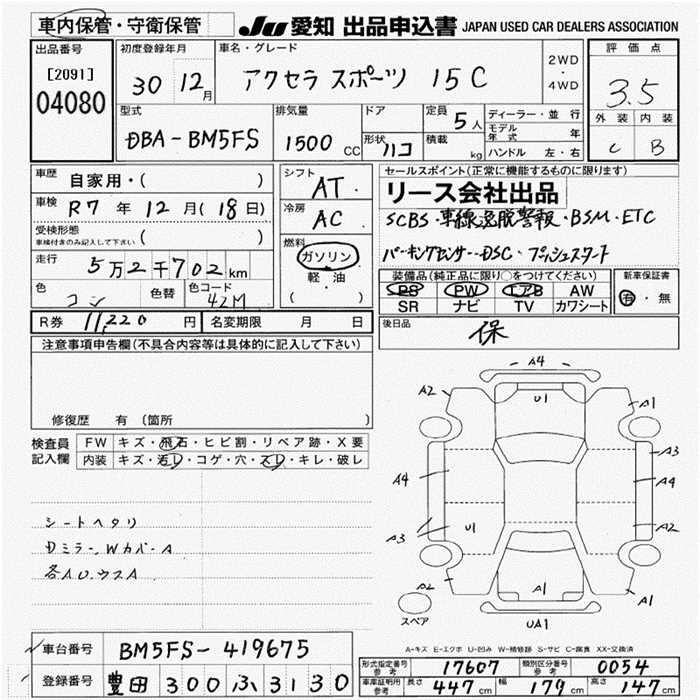 車内保管・守衛保管
JU 愛知 出品申込書 JAPAN USED CAR DEALERS ASSOCIATION
出品番号
[2091]
04080
初度登録年月
30 12月
車名・グレード
アクセラ スポーツ 15C
2WD
・
4WD
評価点
3.5
外装 内装
C B
型式
DBA-BM5FS
排気量
1500 CC
ドア
形状 ハコ
定員 5人
積載 kg
ディーラー・並行
モデル年式 年
ハンドル 左・右
車歴 自家用・( )
車検 R7年12月(18日)
受検形態
車検付きのみ記入して下さい ( )
走行 5万2千702km
色 コン
色替
色コード 42M
シフト AT
冷房 AC
燃料
ガソリン
軽・油
( )
セールスポイント(正常に機能するものに限ります)
リース会社出品
SCBS・車線逸脱警報・BSM・ETC
パーキングセンサー・DSC・プッシュスタート
装備品(純正品に限り○をつけてください)
PS PW エアB AW
SR ナビ TV カワシート
新車保証書
有・無
R券 11,220円
名変期限 月 日
後日品
保
注意事項申告欄(不具合内容等は具体的に記入して下さい)
修復歴 有(箇所
検査員記入欄
FW キズ・飛石・ヒビ割・リペア跡・X要
内装 キズ・汚レ・コゲ・穴・スレ・キレ・破レ
シートヘタリ
Dミラー、Wカバー A
各AU、ウスA
A4
A2
U1
A1
A3
A4
A4
A3
U1
A2
A2
A1
A1
UA1
スペア
A-キズ E-エクボ U-凹み W-補修跡 S-サビ C-腐食 XX-交換済
車台番号 BM5FS-419675
登録番号 豊田 300 ふ 3130
形式指定番号 参考 17607
類別区分番号 参考 0054
車庫証明用 参考 長さ 447cm 幅 179cm 高さ 147cm